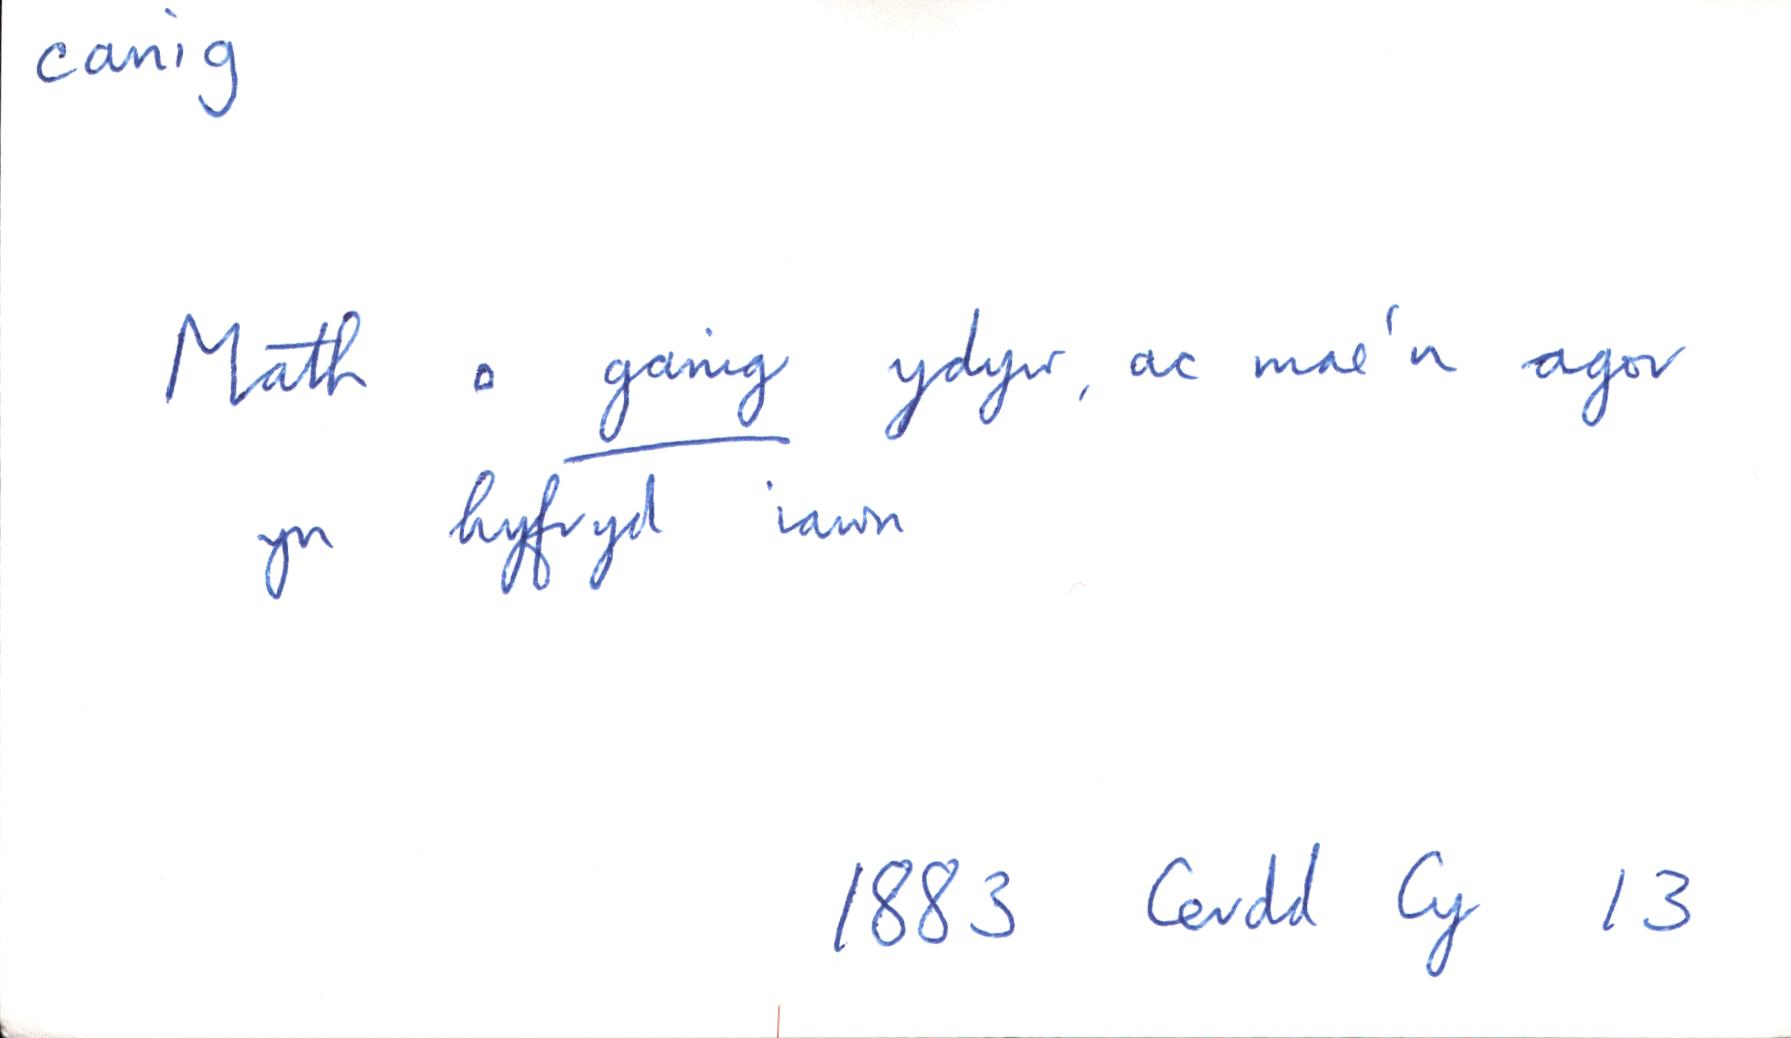 canig
Math o ganig ydyw, ac mae'n agor
yn hyfryd iawn
1883 Cerdd Cy 13